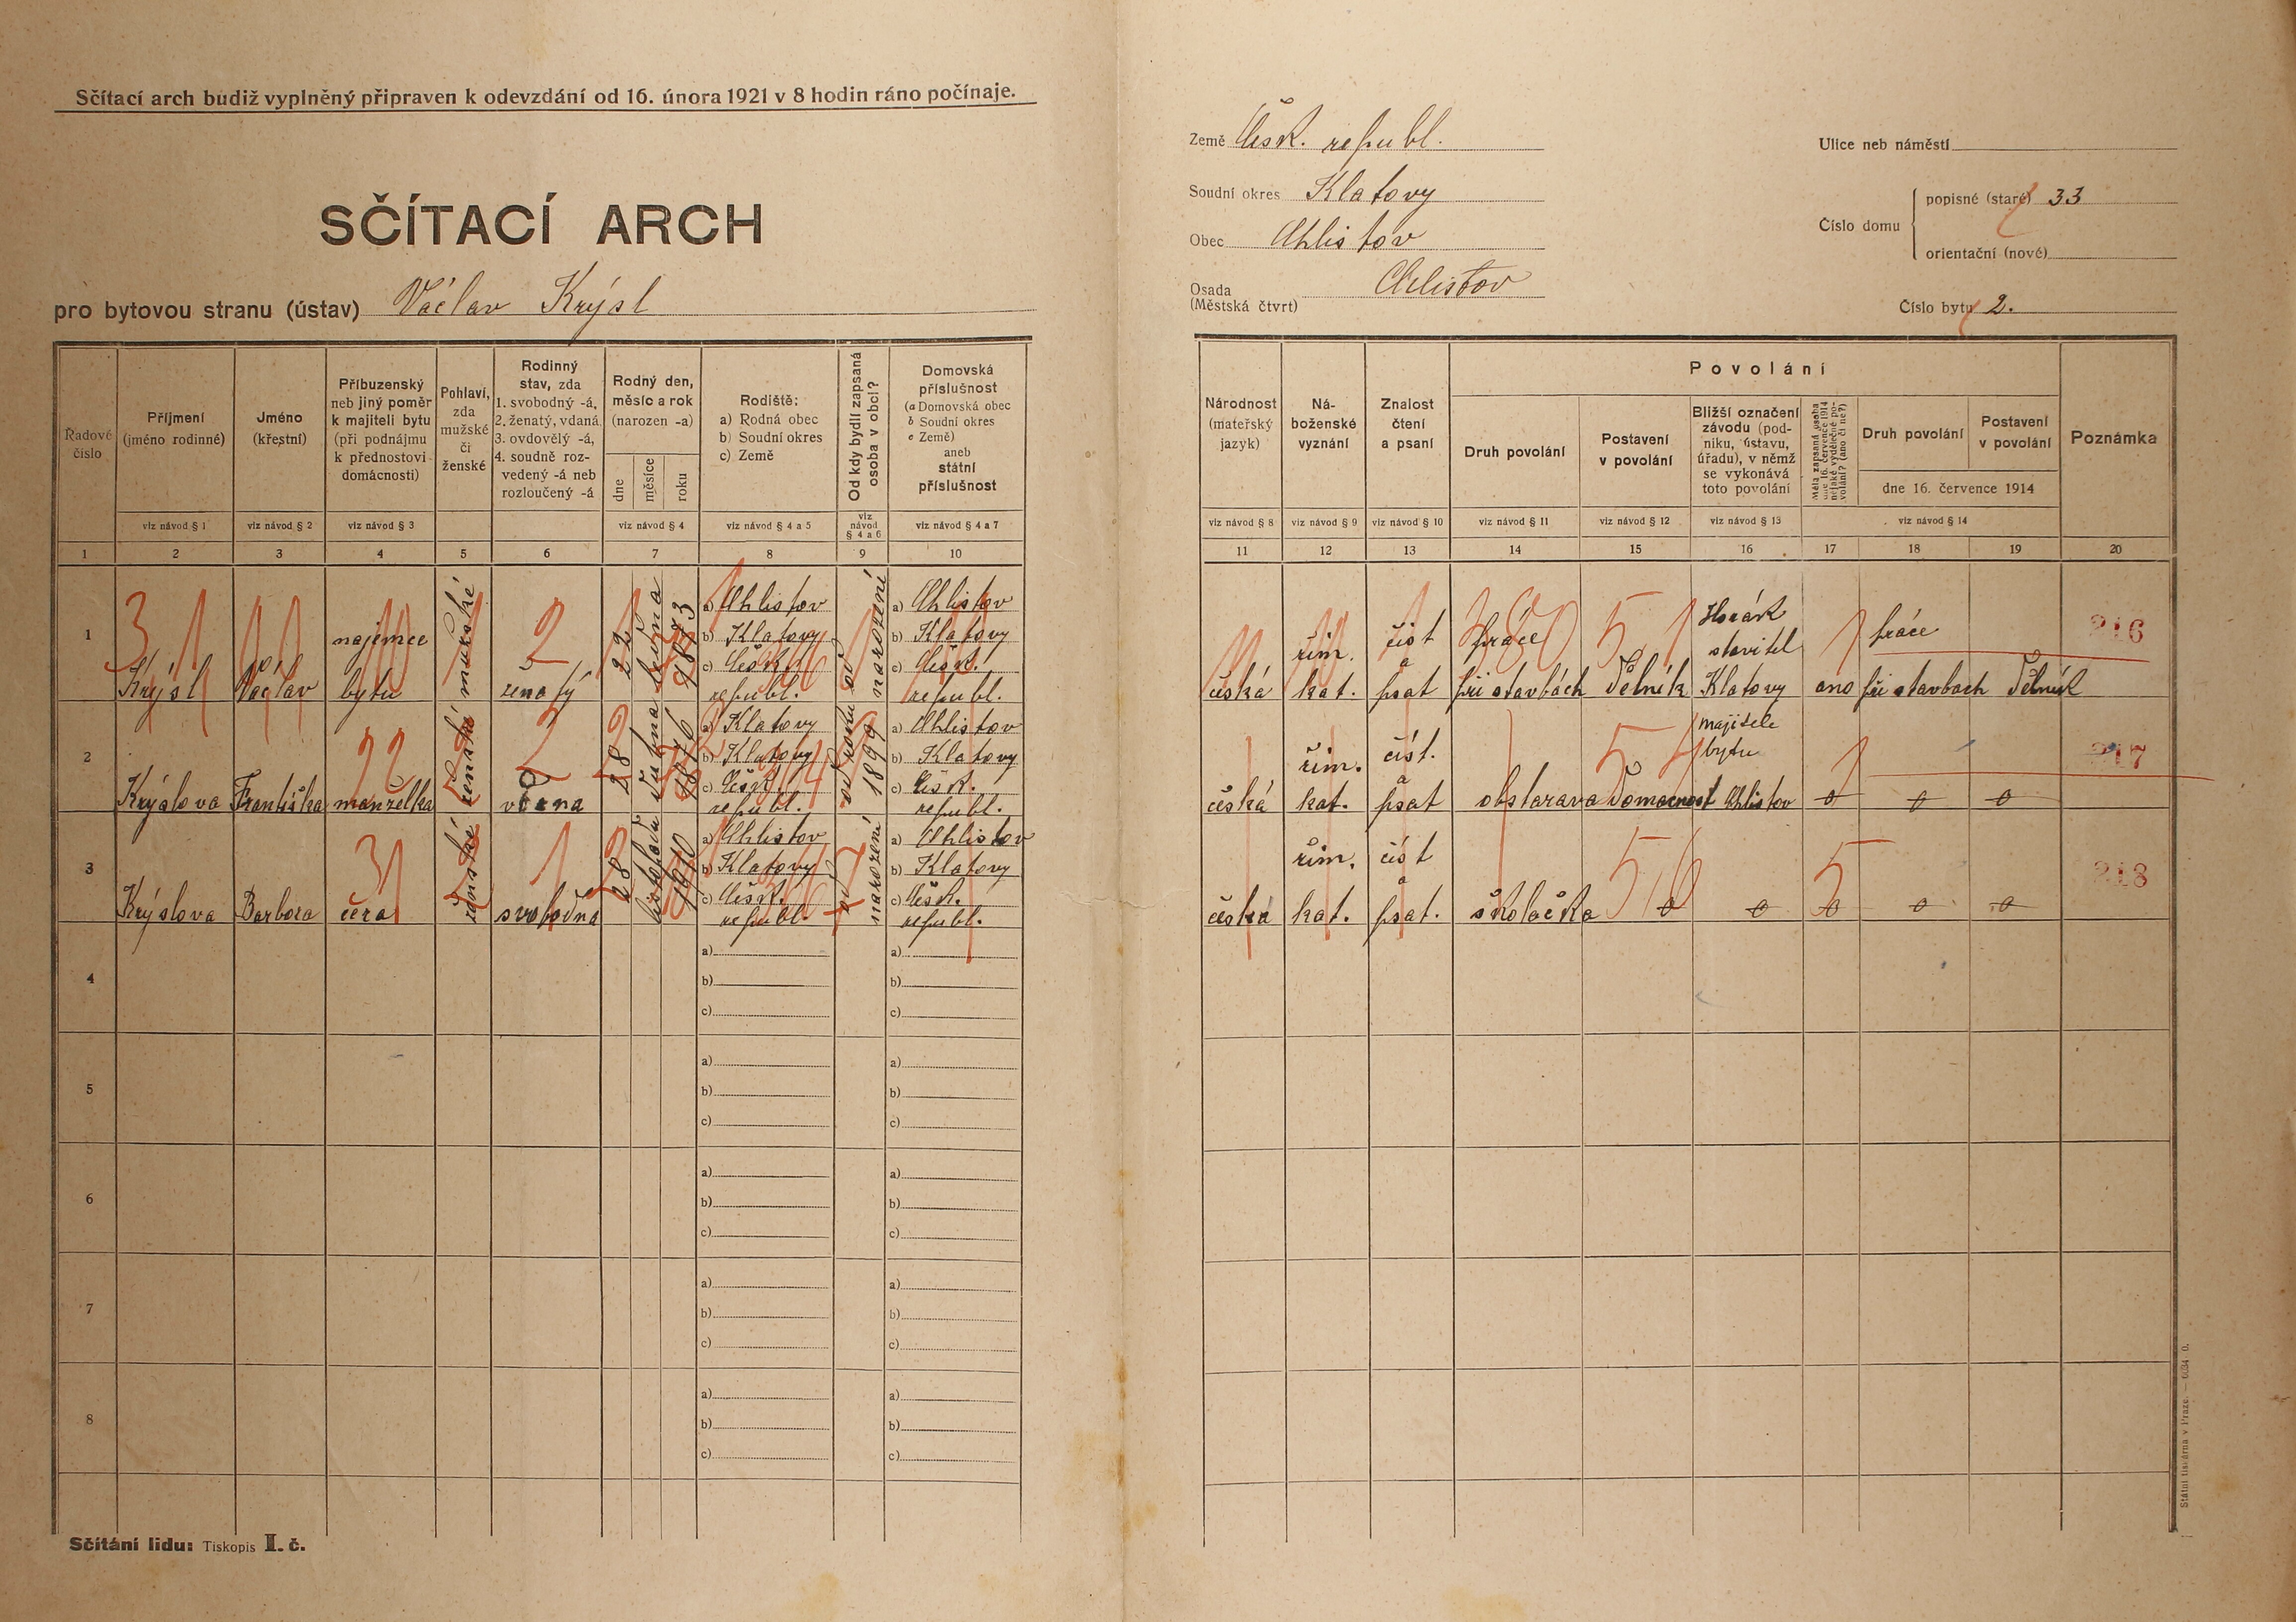 Sčítací arch budiž vyplněný připraven k odevzdání od 16. února 1921 v 8 hodin ráno počínaje.
SČÍTACÍ ARCH
pro bytovou stranu (ústav) Václav Krýsl
Země Česk. republ.
Soudní okres Klatovy
Obec Chlistov
Osada (Městská čtvrt) Chlistov
Ulice neb náměstí
Číslo domu
popisné (staré) 33
orientační (nové)
Číslo bytu 2.
Řadové číslo
Příjmení (jméno rodinné)
Jméno (křestní)
Příbuzenský neb jiný poměr k majiteli bytu (při podnájmu k přednostovi domácnosti)
Pohlaví, zda mužské či ženské
Rodinný stav, zda 1. svobodný -á, 2. ženatý, vdaná, 3. ovdovělý -á, 4. soudně rozvedený -á neb rozloučený -á
Rodný den, měsíc a rok (narozen -a)
dne
měsíce
roku
Rodiště: a) Rodná obec b) Soudní okres c) Země
Od kdy bydlí zapsaná osoba v obci?
Domovská příslušnost (a Domovská obec b Soudní okres c Země) aneb státní příslušnost
viz návod § 1
viz návod § 2
viz návod § 3
viz návod § 4
viz návod § 4 a 5
viz návod § 4 a 6
viz návod § 4 a 7
1 2 3 4 5 6 7 8 9 10
Národnost (mateřský jazyk)
Náboženské vyznání
Znalost čtení a psaní
Povolání
Druh povolání
Postavení v povolání
Bližší označení závodu (podniku, ústavu, úřadu), v němž se vykonává toto povolání
Měla zapsaná osoba dne 16. července 1914 nějaké výdělečné povolání? (ano či ne?)
Druh povolání
Postavení v povolání
dne 16. července 1914
Poznámka
viz návod § 8
viz návod § 9
viz návod § 10
viz návod § 11
viz návod § 12
viz návod § 13
viz návod § 14
11 12 13 14 15 16 17 18 19 20
1
Krýsl
Václav
najemce
bytu
mužské
ženatý
22
ledna
1873
a) Chlistov
b) Klatovy
c) Česk.
republ.
od narození
a) Chlistov
b) Klatovy
c) Česk.
republ.
česká
řím.
kat.
číst
a
psat
práce
při stavbách
dělník
Horák
stavitel
Klatovy
ano
práce
při stavbach
dělník
216
2
Krýslova
Františka
manželka
ženské
vdana
28
dubna
1876
a) Klatovy
b) Klatovy
c) Česk.
republ.
od roku
1899
a) Chlistov
b) Klatovy
c) Česk.
republ.
česká
řím.
kat.
číst.
a
psat
obstarava
domacnost
majitele
bytu
Chlistov
217
3
Krýslova
Barbora
cera
ženské
svobodna
28
listopadu
1910
a) Chlistov
b) Klatovy
c) Česk.
republ.
od
narození
a) Chlistov
b) Klatovy
c) Česk.
republ.
česká
řím.
kat.
číst
a
psat.
školačka
218
4
a)
b)
c)
a)
b)
c)
5
a)
b)
c)
a)
b)
c)
6
a)
b)
c)
a)
b)
c)
7
a)
b)
c)
a)
b)
c)
8
a)
b)
c)
a)
b)
c)
Sčítání lidu: Tiskopis I. č.
Státní tiskárna v Praze. — 6034 0.